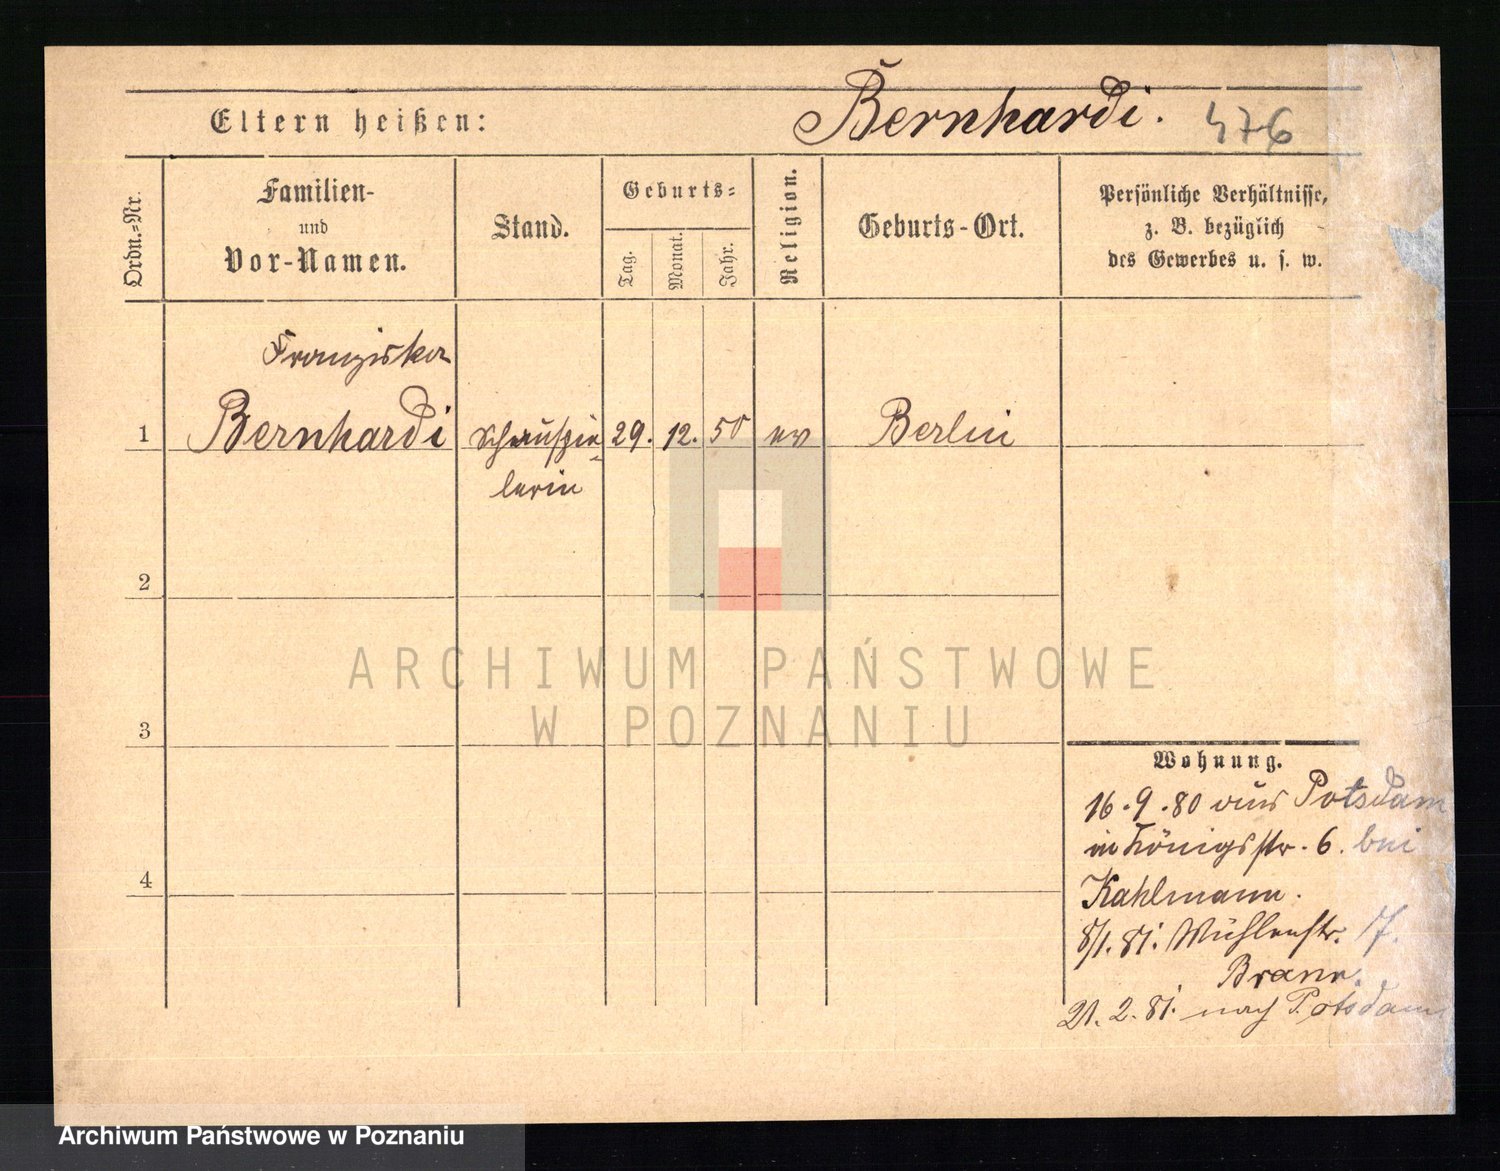 Eltern heißen:
Bernhardi. 476
Ordn.=Nr.
Familien-
und
Vor-Namen.
Stand.
Geburts=
Tag.
Monat.
Jahr.
Religion.
Geburts-Ort.
Persönliche Verhältnisse,
z. B. bezüglich
des Gewerbes u. s. w.
Franziska
1 Bernhardi Schauspie= 29. 12. 50 ev Berlin
lerin
2
3
4
ARCHIWUM PAŃSTWOWE
W POZNANIU
Wohnung.
16.9.80 aus Potsdam
in Königsstr. 6. bei
Kahlmann.
8/1.81. Mühlenstr. 17.
21.2.81. nach Potsdam
Archiwum Państwowe w Poznaniu